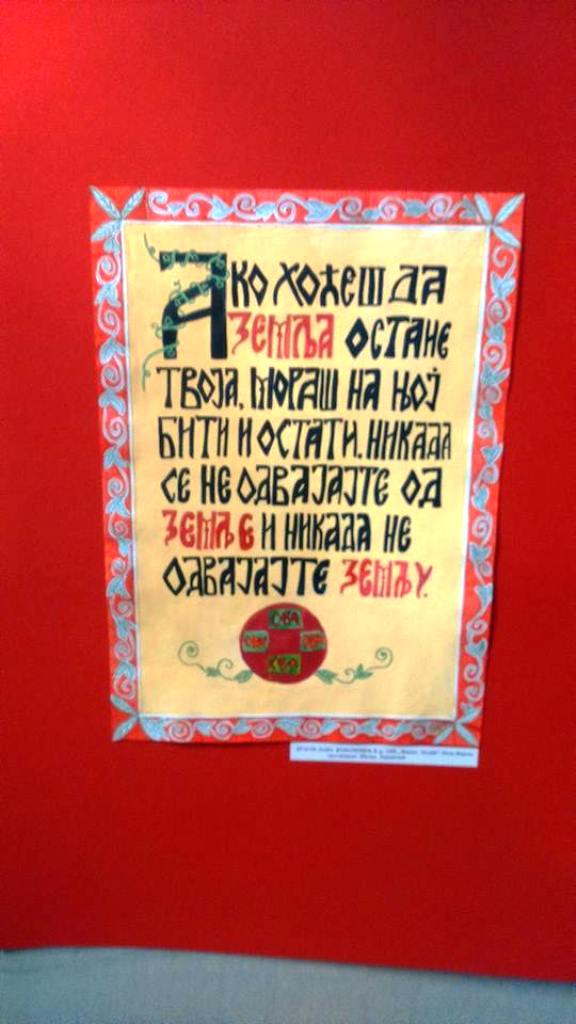 Ако хоћеш да
земља остане
твоја, мораш на њој
бити и остати. Никада
се не одвајајте од
земље и никада не
одвајајте земљу.